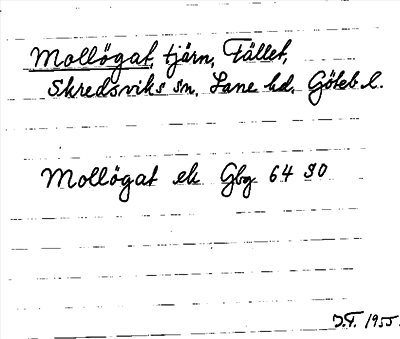 Mollögat, tjärn, Fället,
Skredsviks sn, Lane hd, Göteb l.
Mollögat ek Gbg 64 SO
J.T. 1955.